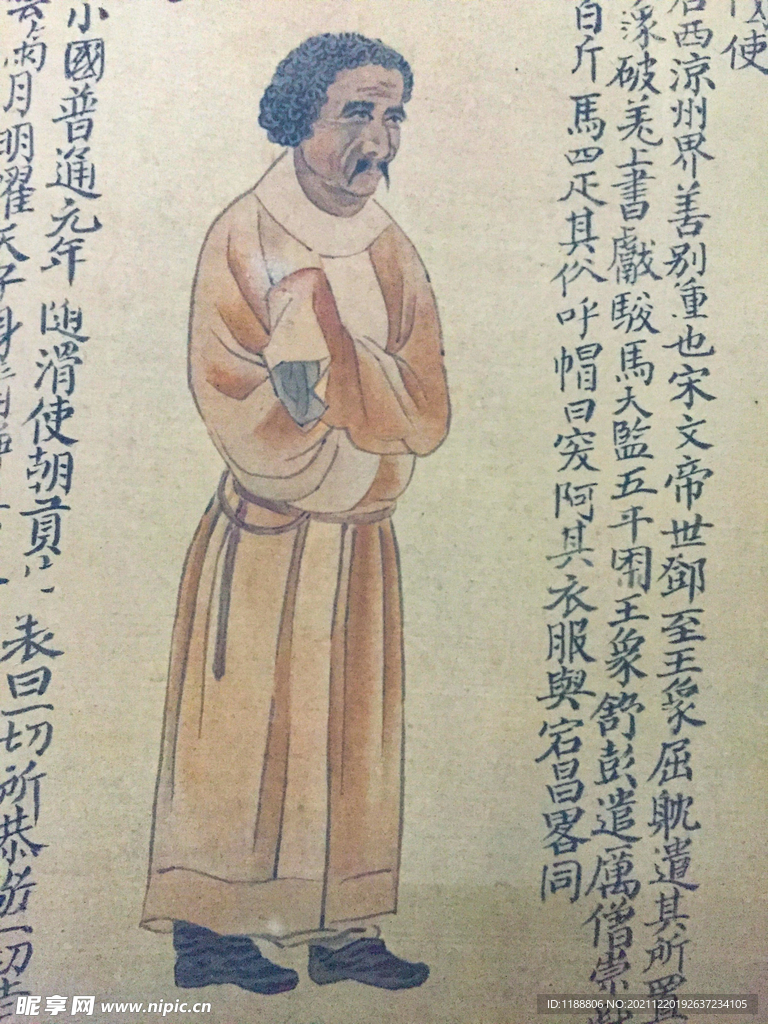 使
西涼州界善别種也宋文帝世鄧至王象屈躭遣其所置
象破羌上書獻駿馬天監五年國王象舒彭遣厲僧崇
百斤馬四疋其俗呼帽曰突阿其衣服與宕昌畧同
小國普通元年隨滑使朝貢
表曰一切所恭敬一切吉
雲滿月明耀天子身
昵享网 www.nipic.cn
ID:1188806 NO:20211220192637234105